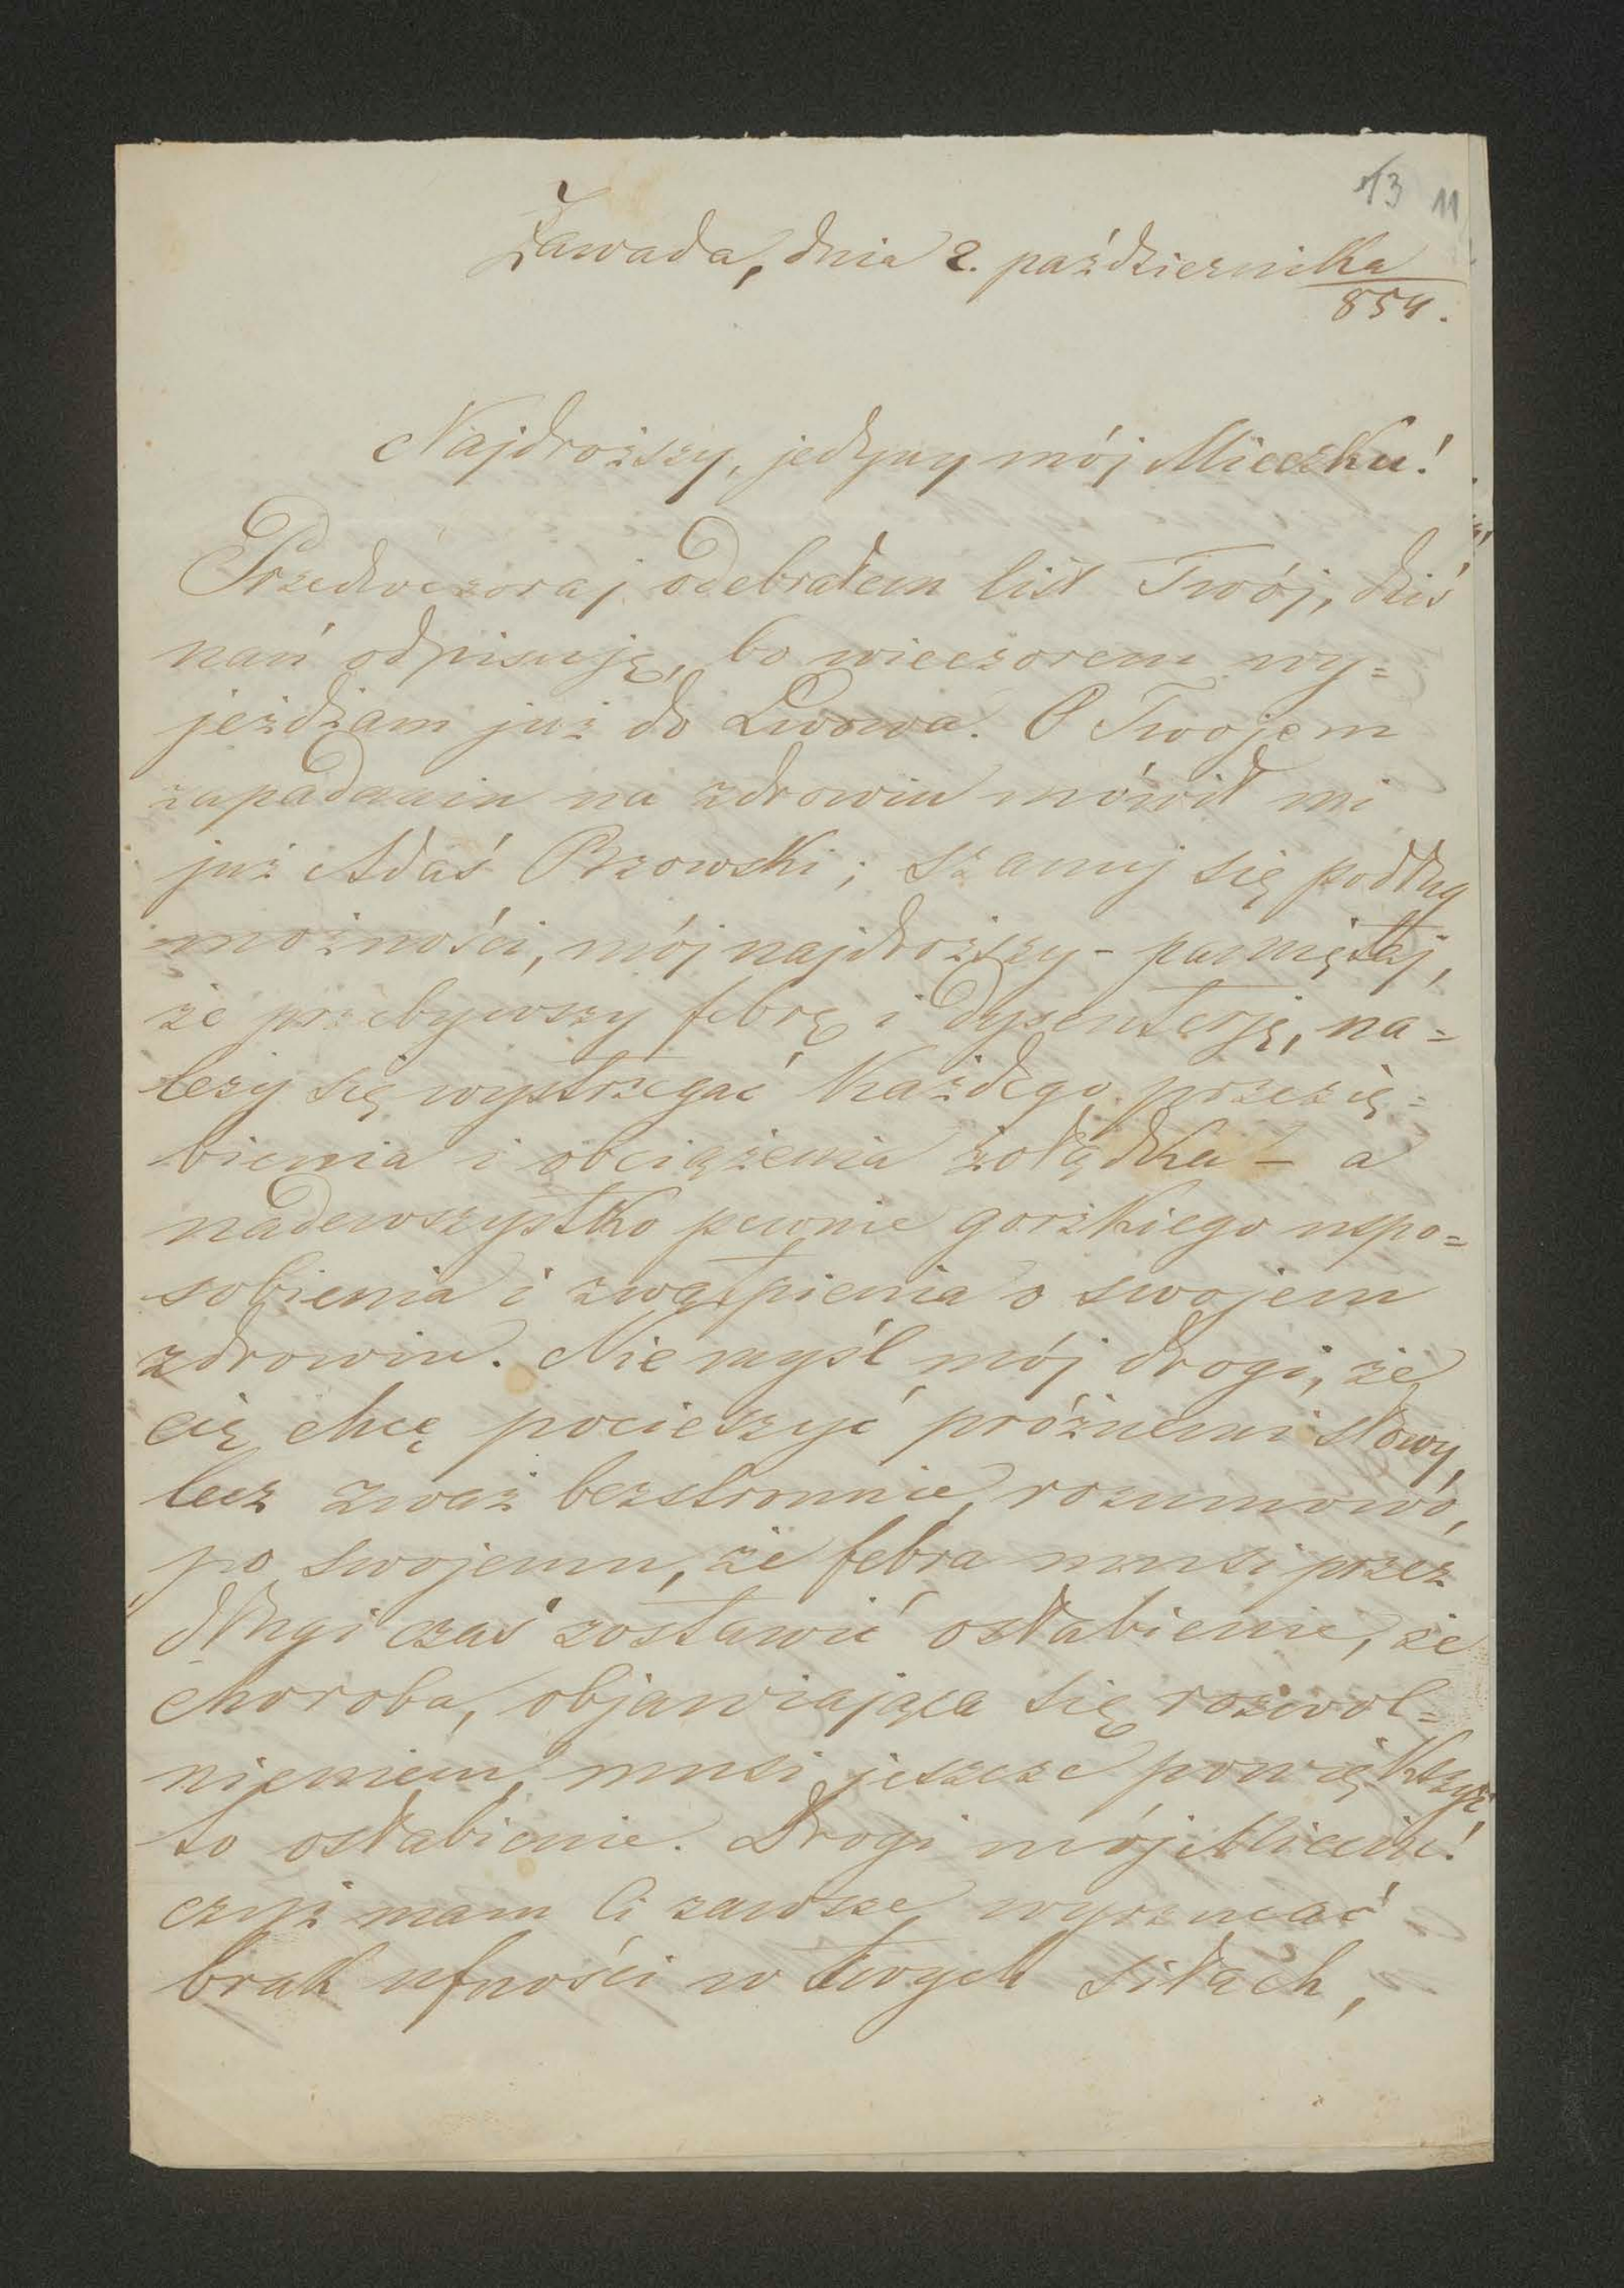 13 11
Zawada, dnia 2. października
854.
Najdroższy, jedyny mój Mieczku!
Przedwczoraj odebrałem list Twój, dziś
nań odpisuję, bo wieczorem wy=
jeżdżam już do Lwowa. O Twojem
zapadaniu na zdrowiu mówił mi
już Adaś Brzowski; szanuj się podług
możności, mój najdroższy - pamiętaj,
że przebywszy febrę i dysenterję, na=
leży się wystrzegać każdego przezię=
bienia i obciążenia żołądka - a
nadewszystko pewnie gorzkiego uspo=
sobienia i zwątpienia o swojem
zdrowiu. Nie myśl mój drogi, że
cię chcę pocieszyć próżnemi słowy,
lecz zważ bezstronnie, rozumowo,
po swojemu, że febra musi przez
długi czas zostawić osłabienie, że
choroba, objawiająca się rozwol=
nieniem, musi jeszcze powiększyć
to osłabienie. Drogi mój Mieciu!
czyż mam Ci zawsze wyrzucać
brak ufności w twych siłach,